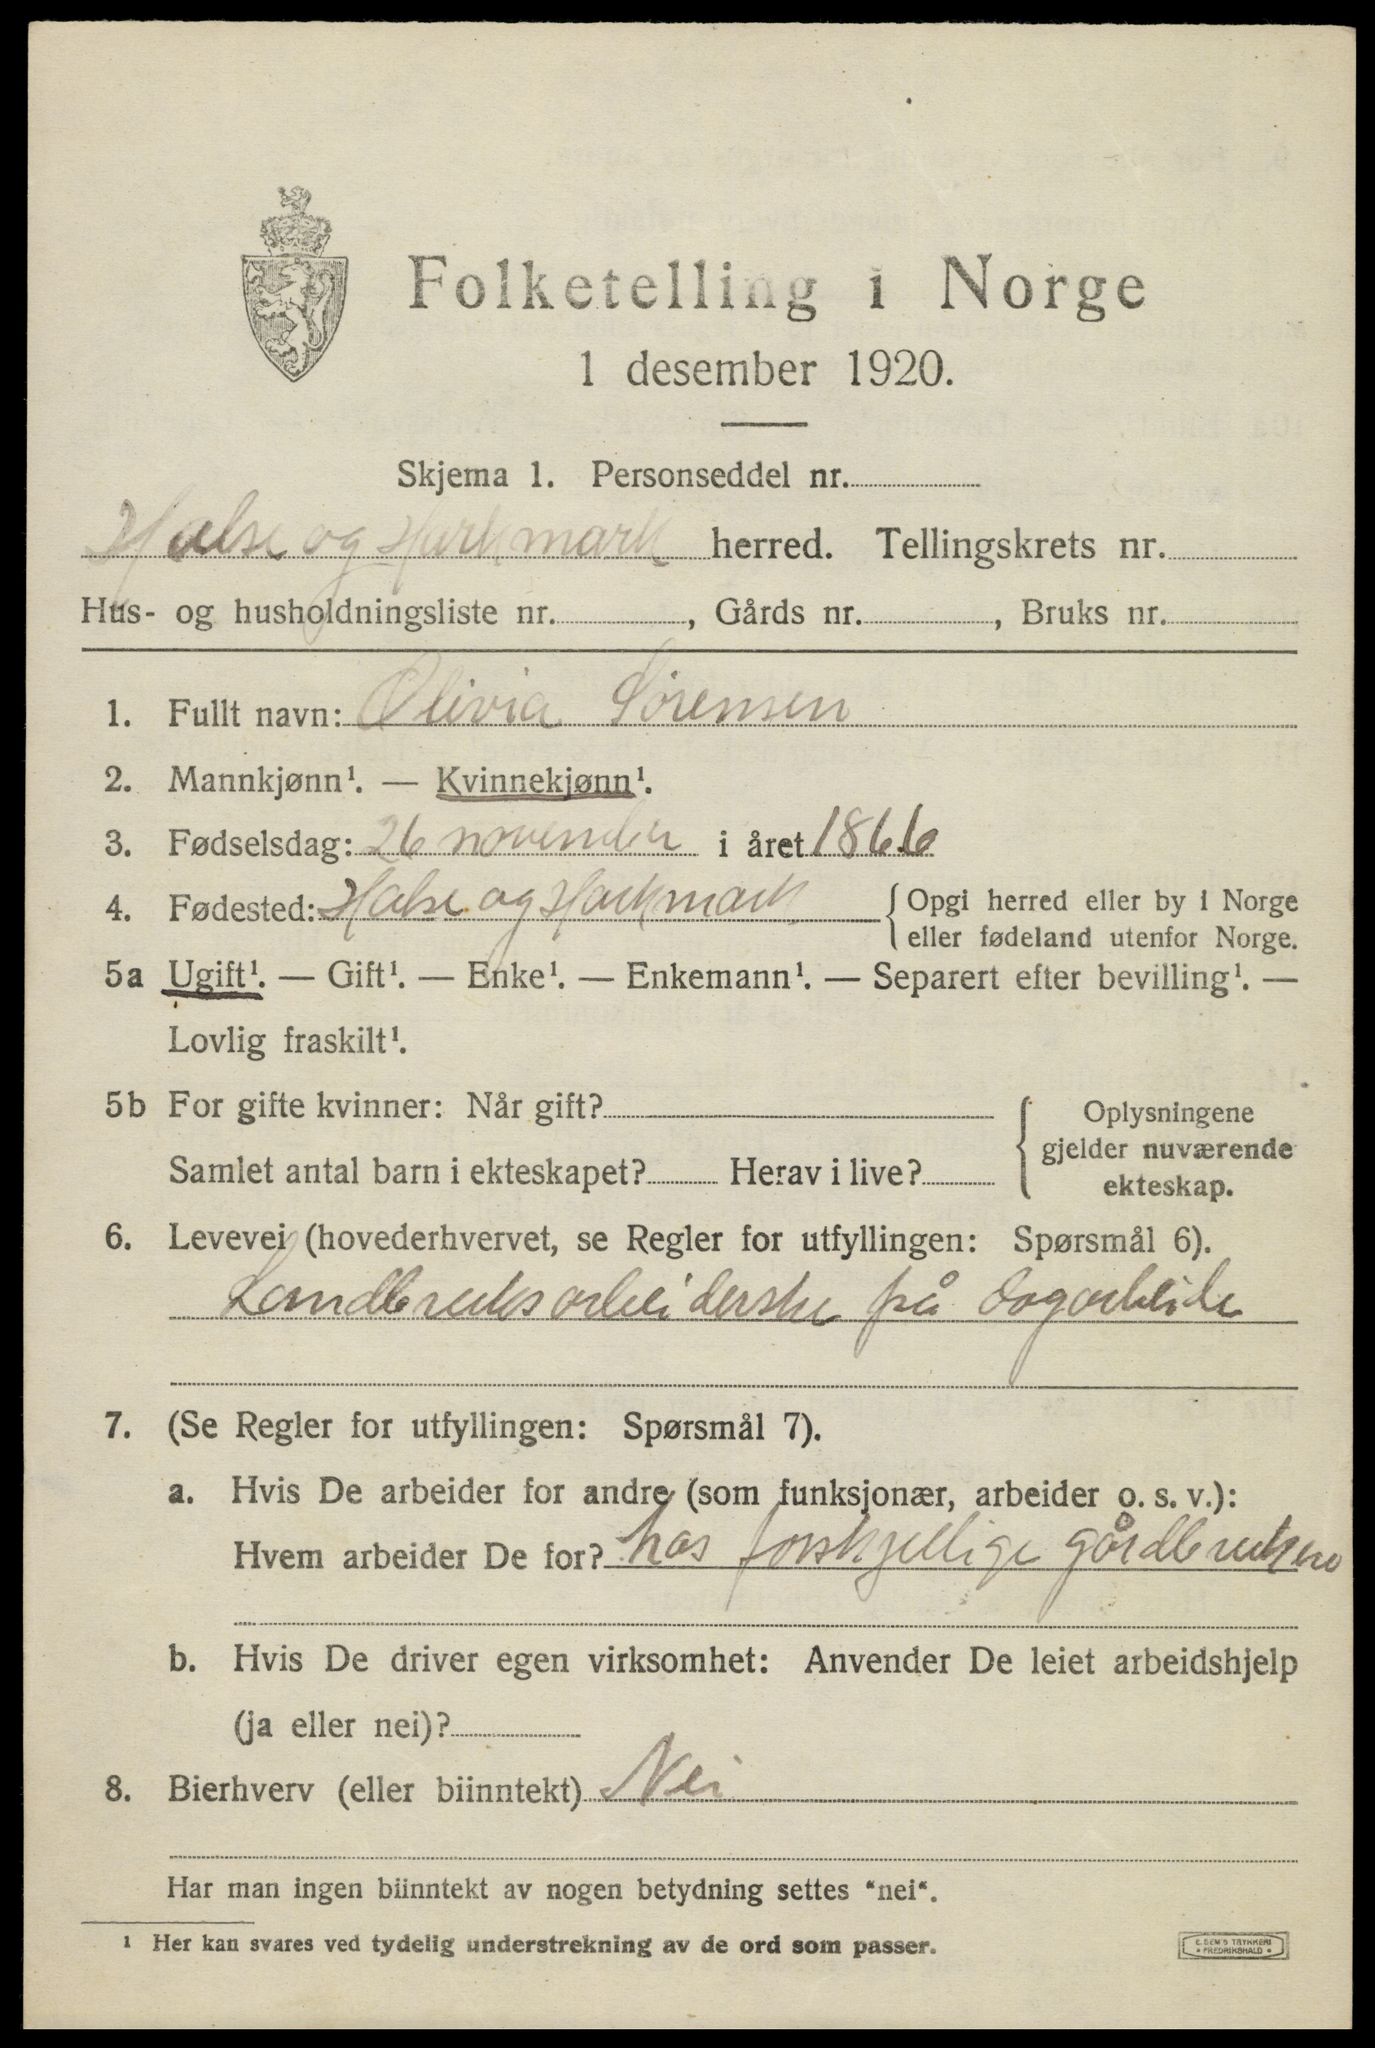 Folketelling i Norge
1 desember 1920.
Skjema 1. Personseddel nr.
Halse og Harkmark herred. Tellingskrets nr.
Hus- og husholdningsliste nr. , Gårds nr. , Bruks nr.
1. Fullt navn: Olivia Sørensen
2. Mannkjønn¹. — Kvinnekjønn¹.
3. Fødselsdag: 26 november i året 1866
4. Fødested: Halse og Harkmark { Opgi herred eller by i Norge
eller fødeland utenfor Norge.
5a Ugift¹. — Gift¹. — Enke¹. — Enkemann¹. — Separert efter bevilling¹. —
Lovlig fraskilt¹.
5b For gifte kvinner: Når gift? { Oplysningene
gjelder nuværende
Samlet antal barn i ekteskapet? Herav i live? ekteskap.
6. Levevei (hovederhvervet, se Regler for utfyllingen: Spørsmål 6).
Landbruksarbeiderske på dagarbeide
7. (Se Regler for utfyllingen: Spørsmål 7).
a. Hvis De arbeider for andre (som funksjonær, arbeider o. s. v.):
Hvem arbeider De for? hos forskjellige gårdbrukere
b. Hvis De driver egen virksomhet: Anvender De leiet arbeidshjelp
(ja eller nei)?
8. Bierhverv (eller biinntekt) Nei
Har man ingen biinntekt av nogen betydning settes “nei“.
¹ Her kan svares ved tydelig understrekning av de ord som passer.
E. SEM'S TRYKKERI
FREDRIKSHALD